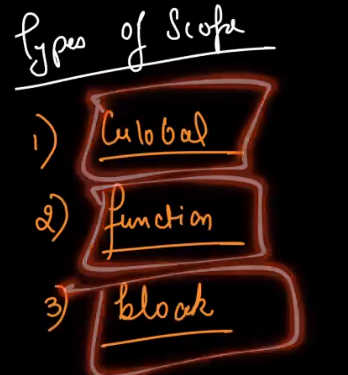 Types of Scope
1) Global
2) function
3) block